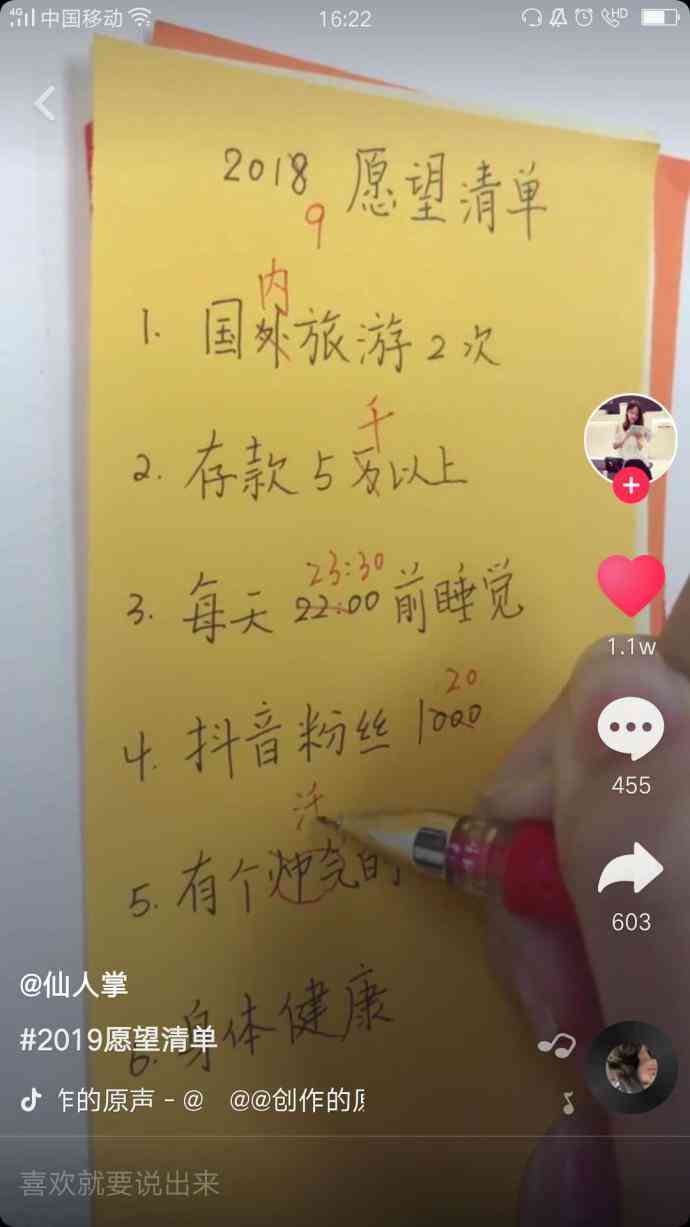 4G 中国移动 16:22 HD
2018 愿望清单
9
内
1. 国外旅游2次
千
2. 存款5万以上
23:30
3. 每天 22:00 前睡觉
20
4. 抖音粉丝 1000
5. 有个帅气的
6. 身体健康
1.1w
455
603
@仙人掌
#2019愿望清单
的原声 - @ @@创作的原
喜欢就要说出来